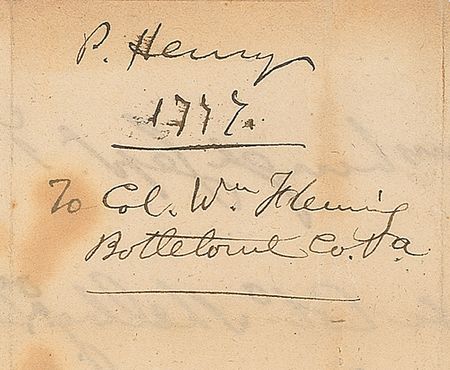 P. Henry
1777.
To Col. Wm Fleming
Bottetourt Co. Va